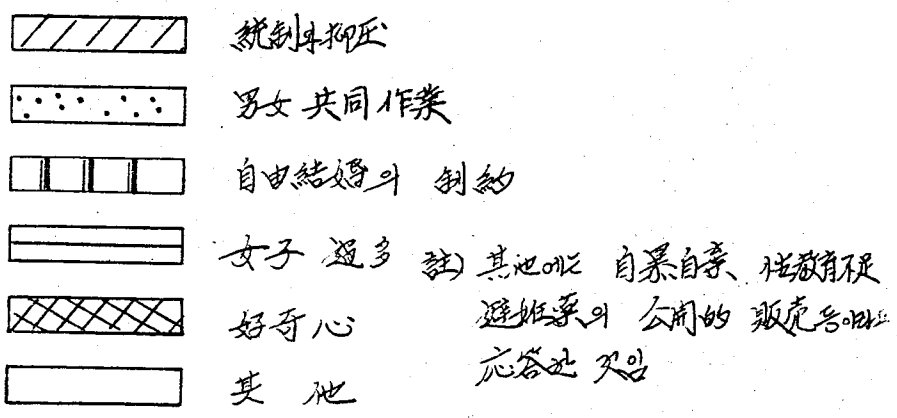 統制와 抑圧
男女 共同 作業
自由結婚의 制約
女子 過多
好奇心
其 他
註) 其他에는 自暴自棄、性敎育不足
避姙薬의 公開的 販売等이라고
応答한 것임